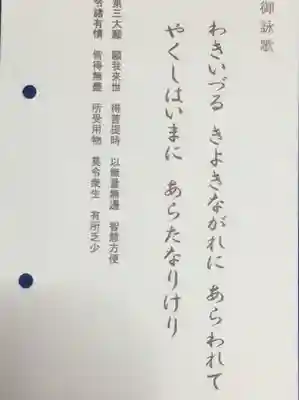 御詠歌
わきいづる きよきながれに あらわれて
やくしはいまに あらたなりけり
第三大願 願我来世 得菩提時 以無量無邊 智慧方便
令諸有情 皆得無盡 所受用物 莫令衆生 有所乏少